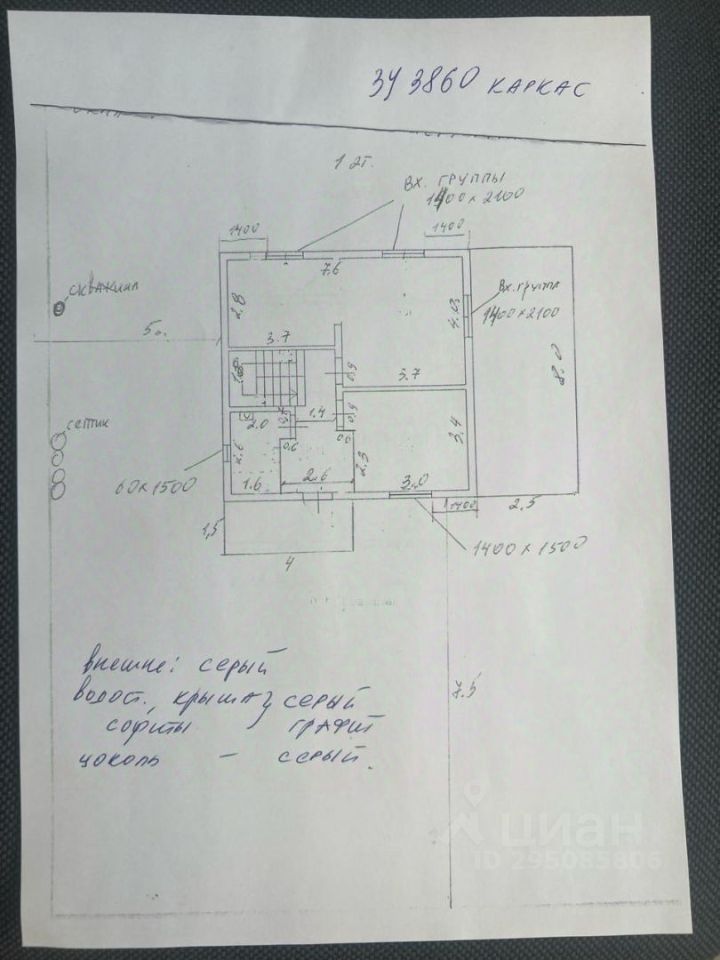 ЗУ 3860 КАРКАС
1 эт.
ВХ. ГРУППЫ
1400 х 2100
1400
1400
7.6
скважина
2.8
4.3
Вх. группа
1400 х 2100
5
3.7
0,9
3.7
8.0
1.4
0,9
септик
2.0
0,6
3,4
2.3
60х1500
1.6
2.6
3.0
1400
2.5
1,5
1400 х 1500
4
внешне: серый
водост., крыша } серый
софиты графит
цоколь - серый.
7.5
циан
ID 295085806